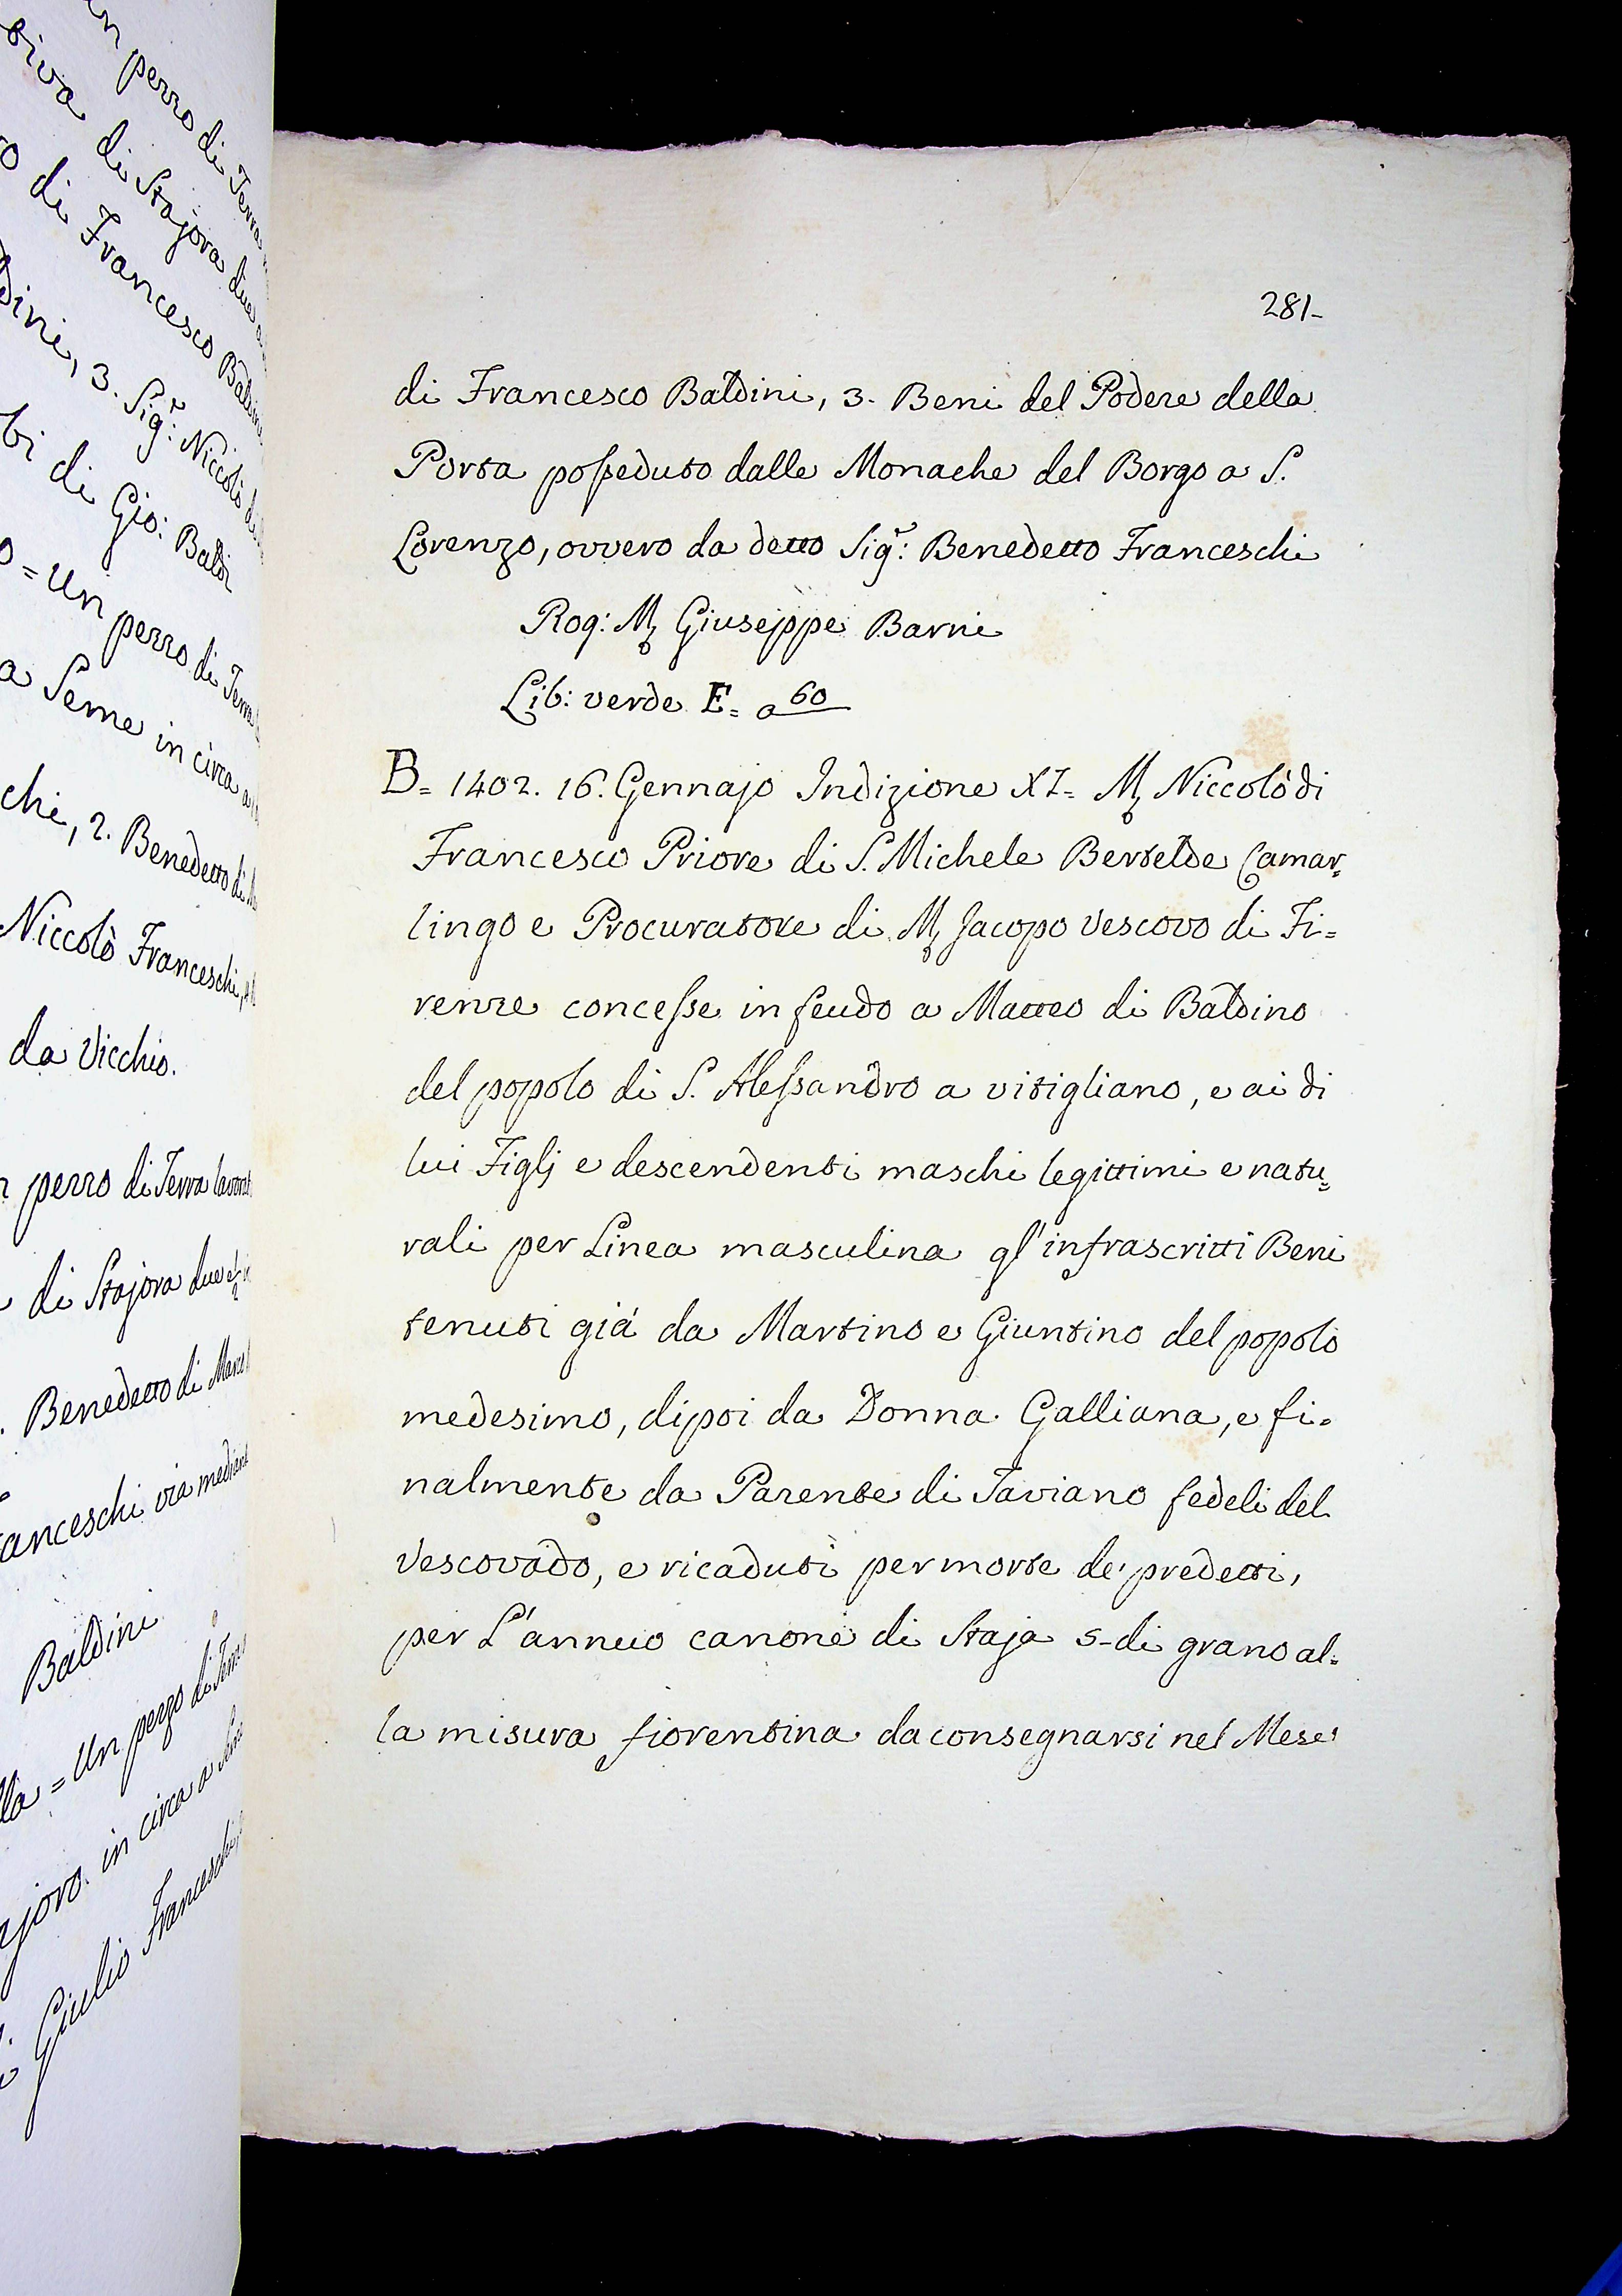 281-
di Francesco Baldini, 3. Beni del Podere della
Porta posseduto dalle Monache del Borgo a S.
Lorenzo, ovvero da detto Sig.r: Benedetto Franceschi
Rog: M. Giuseppe Barni
Lib: verde E= a 60
B= 1402. 16. Gennajo Indizione XI= M. Niccolò di
Francesco Priore di S. Michele Bertelde Camar=
lingo e Procuratore di M. Jacopo Vescovo di Fi=
renze concesse in feudo a Matteo di Baldino
del popolo di S. Alessandro a vitigliano, e ai di
lui Figlj e descendenti maschi legittimi e natu=
rali per Linea masculina gl'infrascritti Beni
tenuti già da Martino e Giuntino del popolo
medesimo, dipoi da Donna Galliana, e fi=
nalmente da Parente di Taviano fedeli del
Vescovado, e ricaduti per morte de' predetti,
per L'annuo canone di Staja 5- di grano al=
la misura fiorentina da consegnarsi nel Mese
di Francesco
3. Sig.r: Niccolò
di Gio:
= Un pezzo di
Seme in circa
2. Benedetto
Niccolò Franceschi,
da Vicchio.
pezzo di Terra
di Stajora due
Benedetto di
via
Baldini
= Un pezzo di
in circa a
Giulio Franceschi